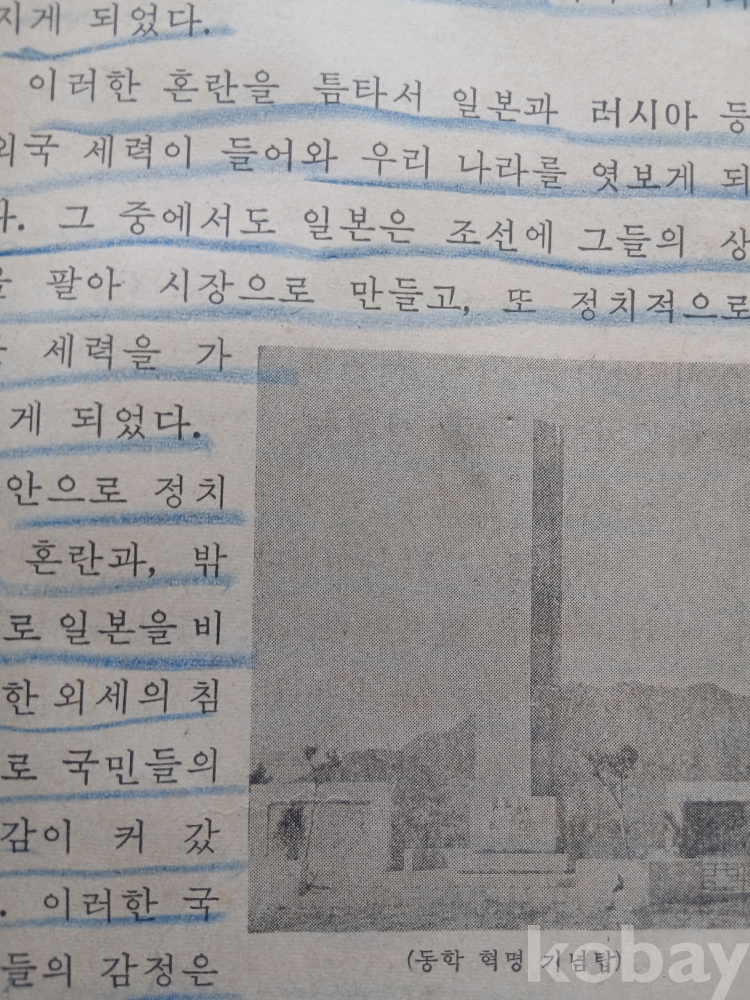 지게 되었다.
이러한 혼란을 틈타서 일본과 러시아 등
외국 세력이 들어와 우리 나라를 엿보게 되
다. 그 중에서도 일본은 조선에 그들의 상
을 팔아 시장으로 만들고, 또 정치적으로
세력을 가
게 되었다.
안으로 정치
혼란과, 밖
로 일본을 비
한 외세의 침
로 국민들의
감이 커 갔
. 이러한 국
들의 감정은
(동학 혁명 기념탑)
kobay